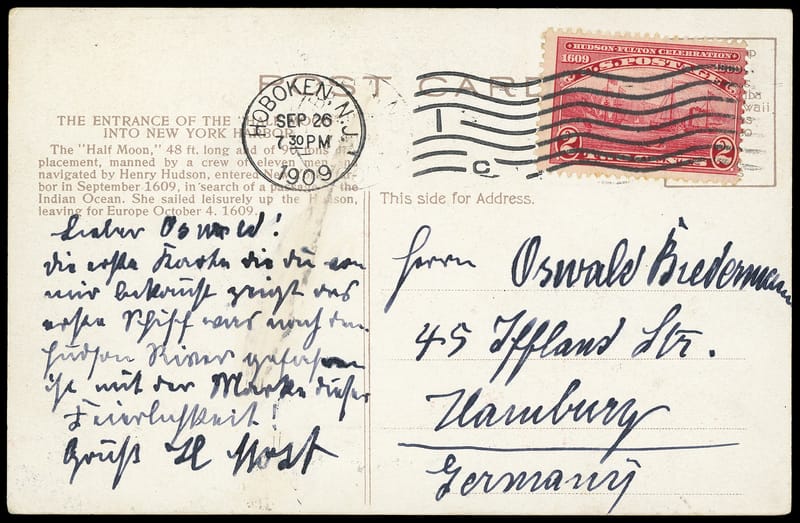 POST CARD
HOBOKEN, N.J.
SEP 26
7 30 PM
1909
1
C
HUDSON-FULTON CELEBRATION
1609 1909
U.S. POSTAGE
2 TWO CENTS 2
THE ENTRANCE OF THE
INTO NEW YORK HARBOR
The "Half Moon," 48 ft. long and of 90 tons
placement, manned by a crew of eleven men
navigated by Henry Hudson, entered
bor in September 1609, in search of a the
Indian Ocean. She sailed leisurely up the Hudson,
leaving for Europe October 4. 1609.
This side for Address.
Lieber Oswald!
die erste Karte die du von
mir bekommst zeigt das
erste Schiff was nach dem
Hudson River gefahren
ist mit der Marke dieser
Feierlichkeit!
Gruß H
Herrn Oswald Biedermann
45 Iffland Str.
Hamburg
Germany